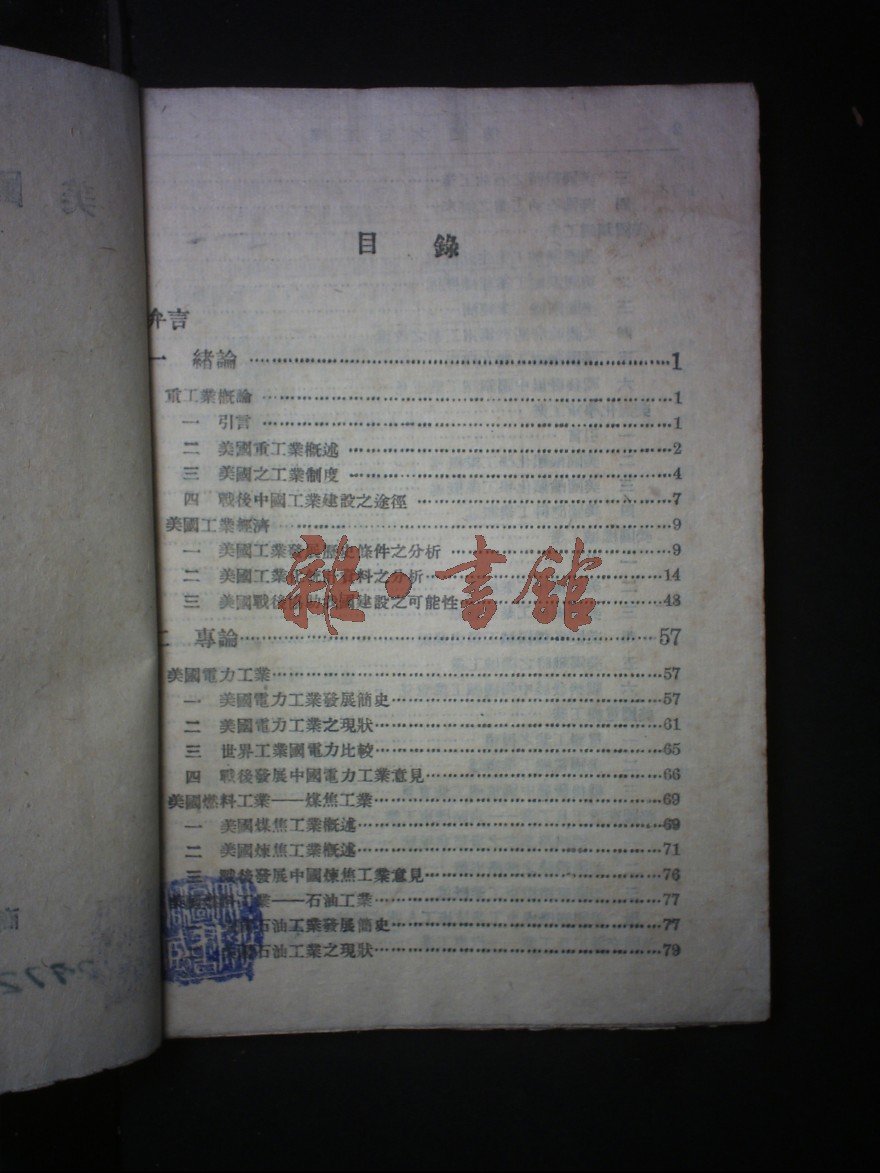 目錄
弁言
一 緒論 1
重工業概論 1
一 引言 1
二 美國重工業概述 2
三 美國之工業制度 4
四 戰後中國工業建設之途徑 7
美國工業經濟 9
一 美國工業發展歷史條件之分析 9
二 美國工業 料之分析 14
三 美國戰後協助我國建設之可能性 48
二 專論 57
美國電力工業 57
一 美國電力工業發展簡史 57
二 美國電力工業之現狀 61
三 世界工業國電力比較 65
四 戰後發展中國電力工業意見 66
美國燃料工業——煤焦工業 69
一 美國煤焦工業概述 69
二 美國煉焦工業概述 71
三 戰後發展中國煉焦工業意見 76
料工業——石油工業 77
石油工業發展簡史 77
石油工業之現狀 79
雜·書館
美